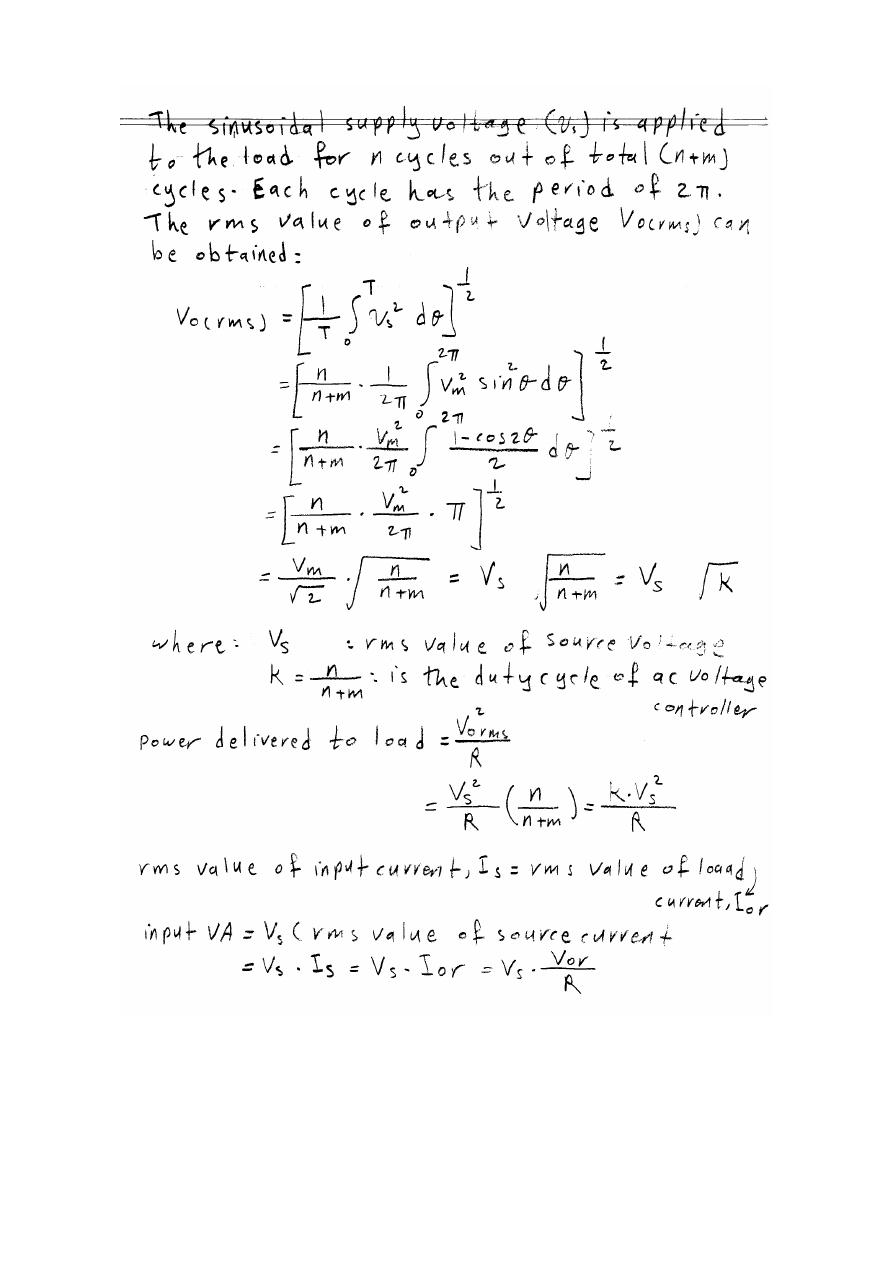 The sinusoidal supply voltage (vs) is applied
to the load for n cycles out of total (n+m)
cycles. Each cycle has the period of 2π.
The rms value of output voltage Vo(rms) can
be obtained:
Vo(rms) = [1/T ∫₀ᵀ vs² dθ]^½
= [n/(n+m) · 1/2π ∫₀^2π Vm² sin²θ dθ]^½
= [n/(n+m) · Vm²/2π ∫₀^2π (1-cos2θ)/2 dθ]^½
= [n/(n+m) · Vm²/2π · π]^½
= Vm/√2 · √(n/(n+m)) = Vs √(n/(n+m)) = Vs √k
where: Vs : rms value of source voltage
k = n/(n+m) : is the duty cycle of ac voltage
controller
power delivered to load = Vorms²/R
= Vs²/R (n/(n+m)) = k.Vs²/R
rms value of input current, Is = rms value of loaad
current, Ior
input VA = Vs (rms value of source current
= Vs . Is = Vs . Ior = Vs . Vor/R